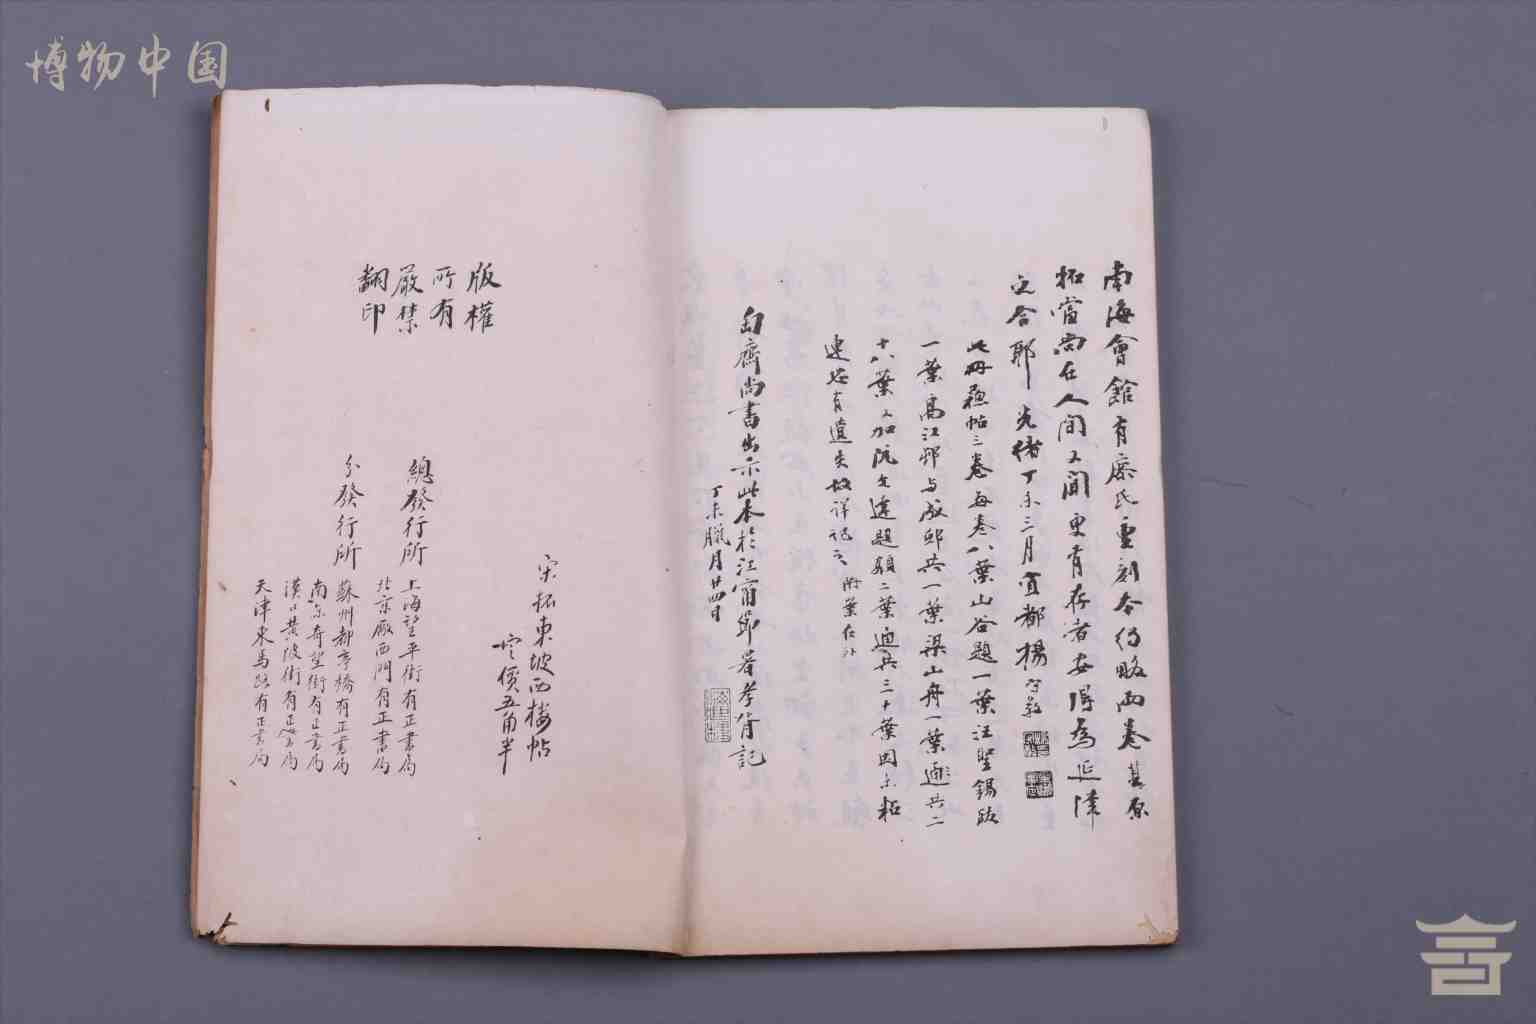 博物中国
南海會館有廖氏重刻本仍略兩卷其原
拓當尚在人間又聞更有存者安得為延津
之合耶 光緒丁未三月宜都楊守敬
此冊蘇帖三卷每卷八葉山谷題一葉汪聖錫跋
一葉高江邨与成邸共一葉梁山舟一葉通共二
十八葉又加阮文達題額二葉通共三十葉因未拓
連恐有遺失故詳記之 附葉在外
匋齋尚書出示此本於江甯節署孝胥記
丁未臘月廿四日
宋拓東坡西樓帖
定價五角半
版權
所有
嚴禁
翻印
總發行所 上海望平街有正書局
北京廠西門有正書局
分發行所 蘇州都亭橋有正書局
南京奇望街有正書局
漢口黃陂街有正書局
天津東馬路有正書局